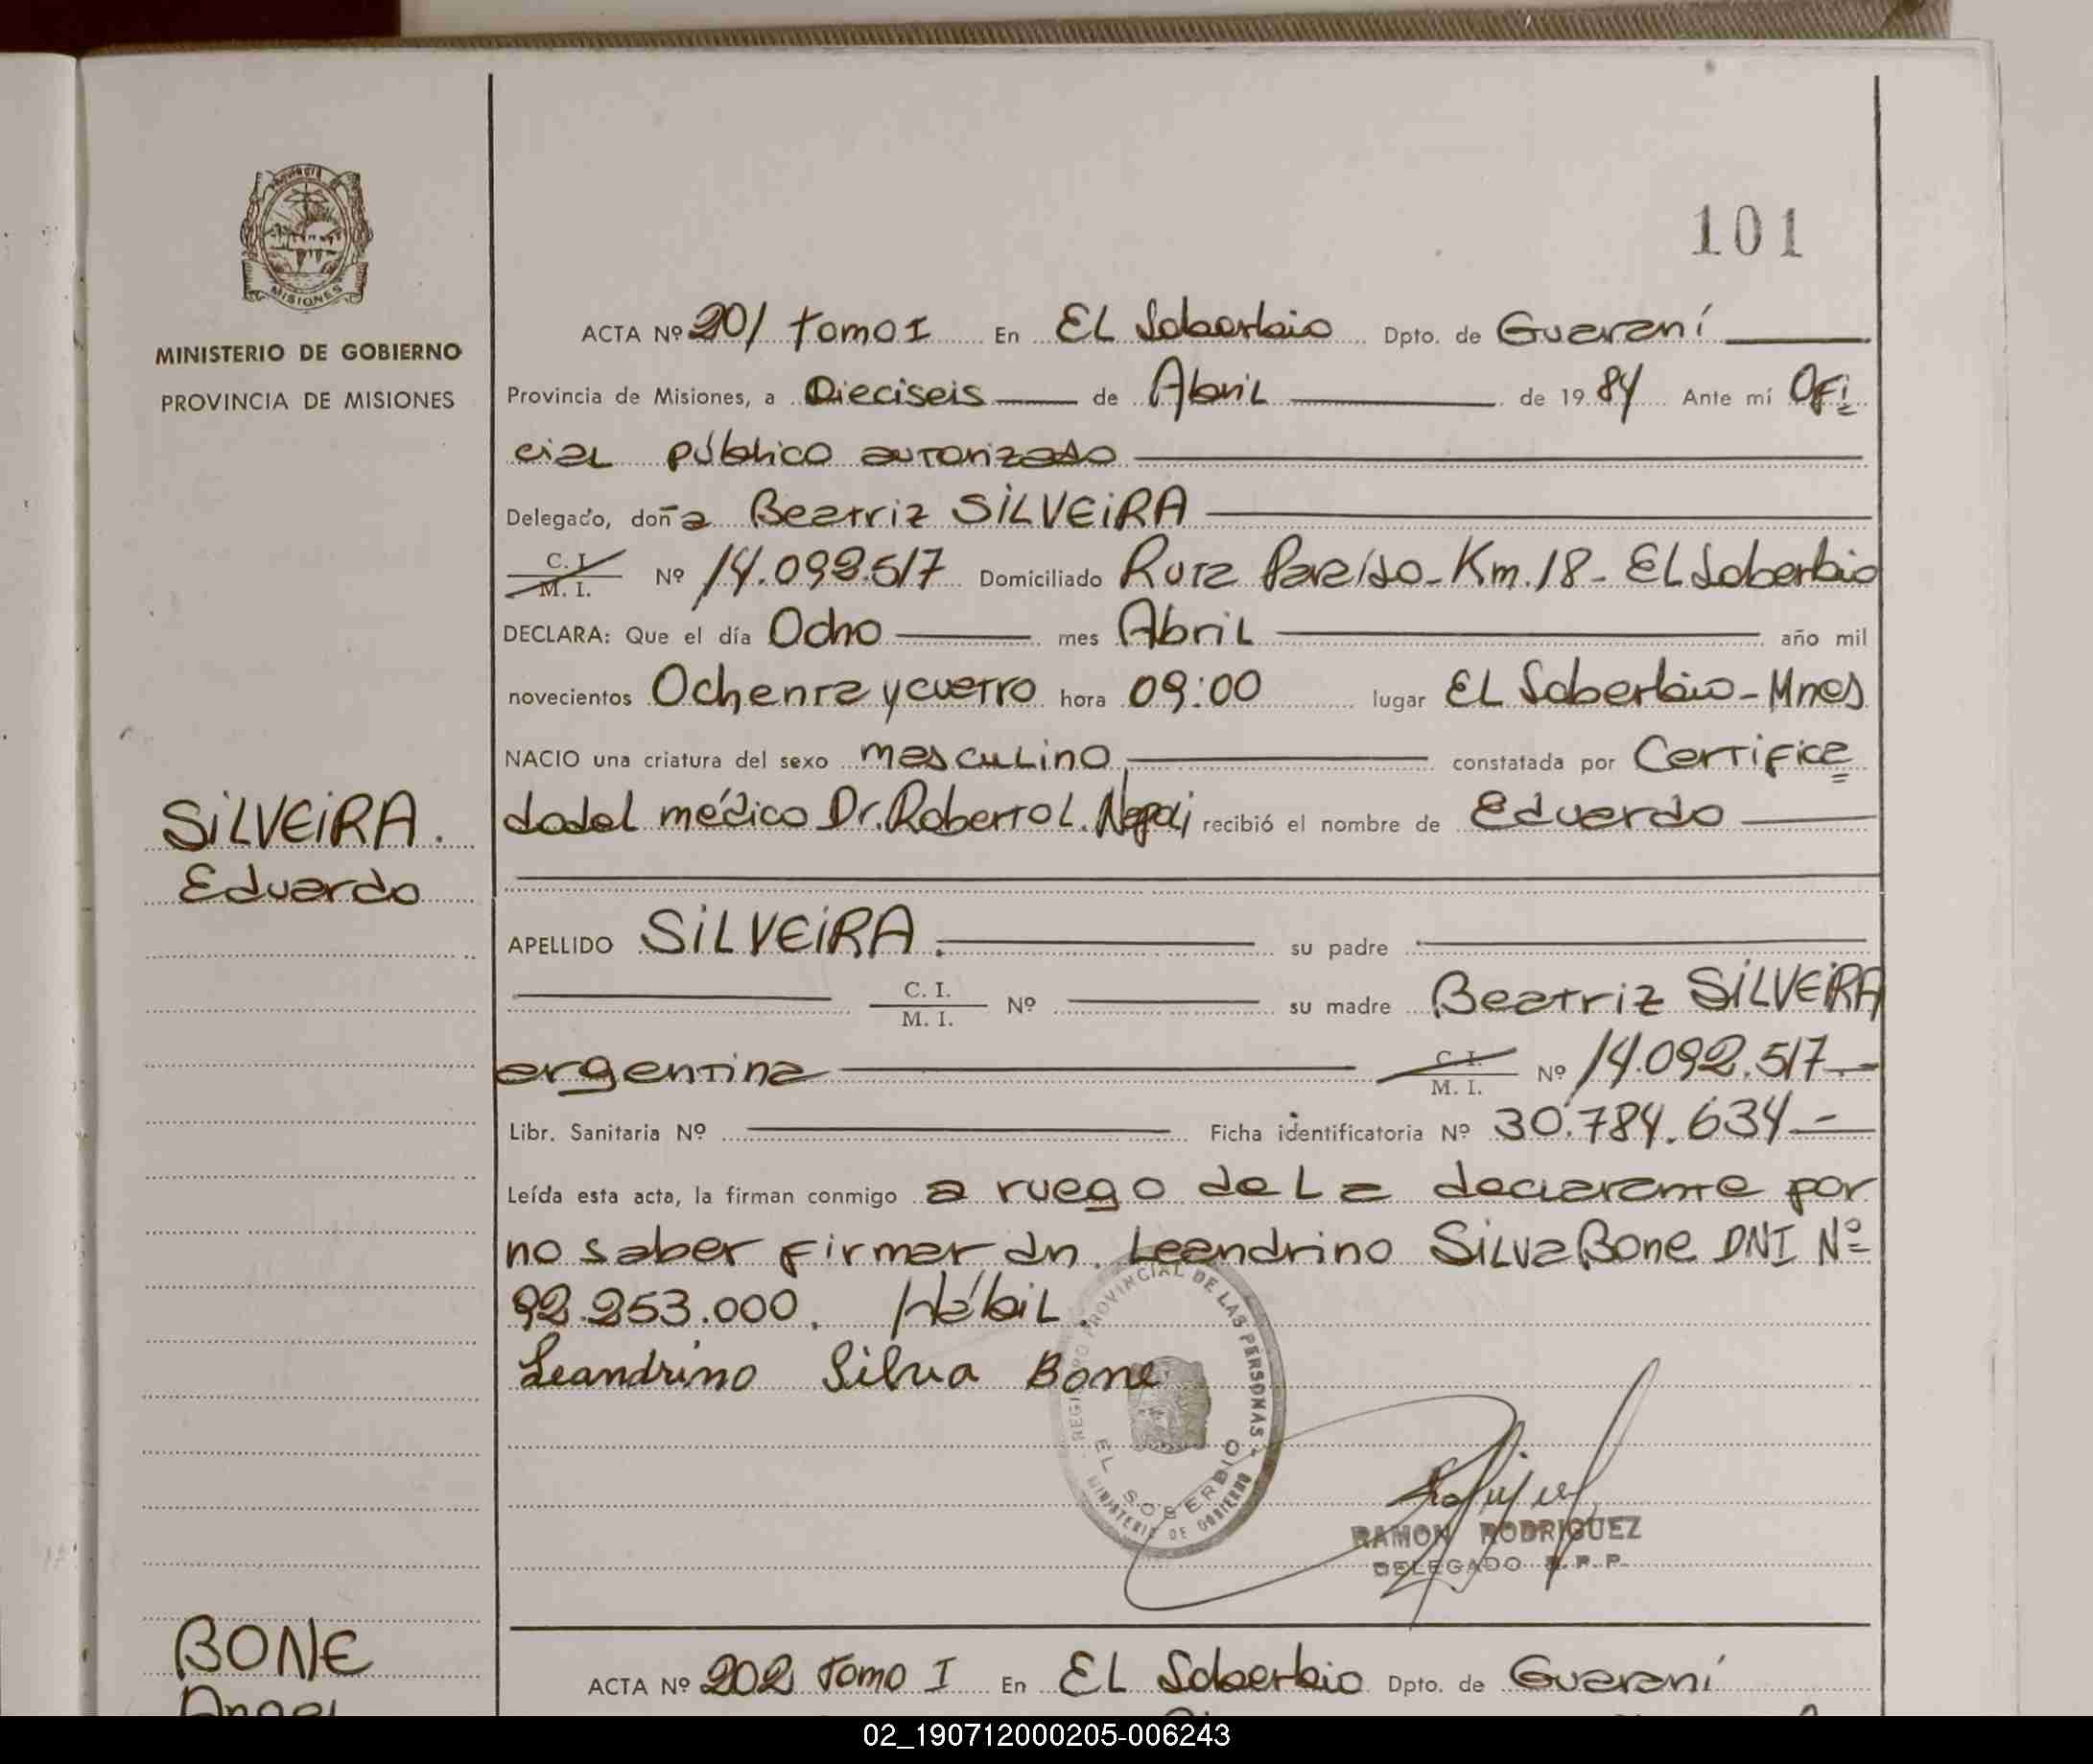 101
MISIONES
MINISTERIO DE GOBIERNO
PROVINCIA DE MISIONES
ACTA Nº 201 Tomo I En El Soberbio Dpto. de Guaraní
Provincia de Misiones, a Dieciseis de Abril de 1984 Ante mí Ofi
cial público autorizado
Delegado, doña Beatriz SILVEIRA
C. I.
M. I. Nº 14.092.517 Domiciliado Ruta Paraíso-Km.18-El Soberbio
DECLARA: Que el día Ocho mes Abril año mil
novecientos Ochenta y cuatro hora 09:00 lugar El Soberbio-Mnes
NACIO una criatura del sexo masculino constatada por Certifica
do del médico Dr. Roberto L. recibió el nombre de Eduardo
SILVEIRA.
Eduardo
APELLIDO SILVEIRA. su padre
C. I.
M. I. Nº su madre Beatriz SILVEIRA
argentina C. I.
M. I. Nº 14.092.517.-
Libr. Sanitaria Nº Ficha identificatoria Nº 30.784.634-
Leída esta acta, la firman conmigo a ruego de la declarante por
no saber firmar dn. Leandrino Silva Bone DNI Nº
92.253.000. Hábil.
Leandrino Silva Bone
REGISTRO PROVINCIAL DE LAS PERSONAS
EL SOBERBIO
MINISTERIO DE GOBIERNO
RAMON RODRIGUEZ
DELEGADO R.P.P.
BONE
Angel
ACTA Nº 202 Tomo I En El Soberbio Dpto. de Guaraní
02_190712000205-006243